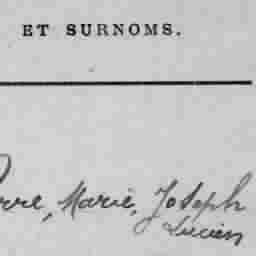 ET SURNOMS.
Pierre, Marie, Joseph
Lucien